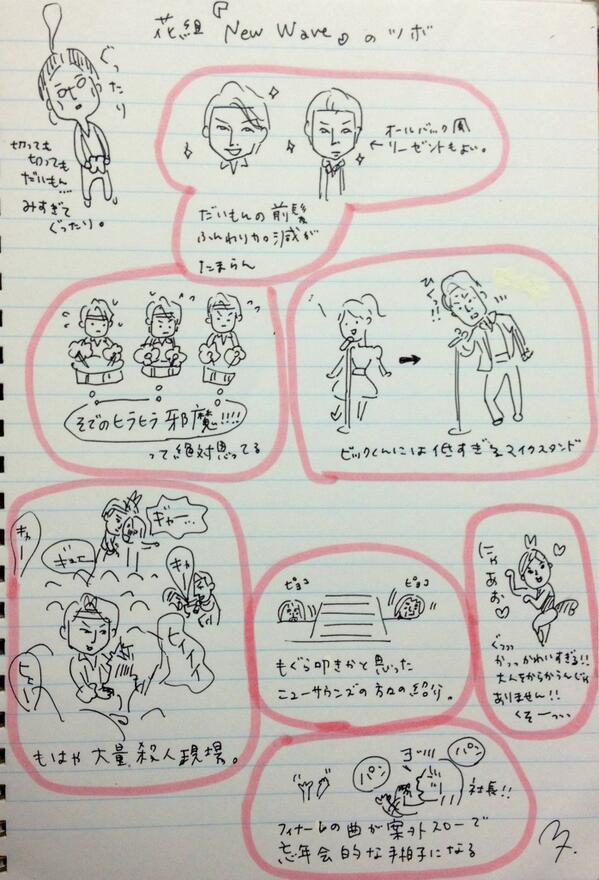 花組『New Wave』のツボ
ぐったり
切っても
切っても
だいもん…
みすぎて
ぐったり。
オールバック風
←リーゼントもよい。
だいもんの前髪
ふんわり加減が
たまらん
そでのヒラヒラ邪魔!!!!
って絶対思ってる
ひくっ!!
ビックくんには低すぎるマイクスタンド
ギャー
ギャー…
ギュニー
キャ
ヒイィィ
ヒェー!
もはや大量殺人現場。
ピョコ
ピョコ
もぐら叩きかと思った
ニューサウンズの方々の紹介。
にゃあお♡
ぐっっ
かっっかわいすぎる!!
大人をからかうんじゃ
ありません!!
くそーっ…
パン
パン
ヨッ!!!!
社長!!
フィナーレの曲が案外スローで
忘年会的な手拍子になる